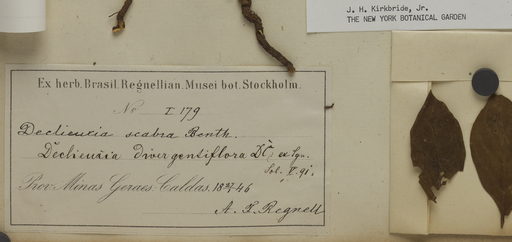 J. H. Kirkbride, Jr.
THE NEW YORK BOTANICAL GARDEN
Ex herb. Brasil. Regnellian. Musei bot. Stockholm.
No I 179
Declieuxia scabra Benth.
Declieuxia divergentiflora DC; ex sgn.
Sol. V. 91.
Prov. Minas Geraes. Caldas, 1846
A. F. Regnell